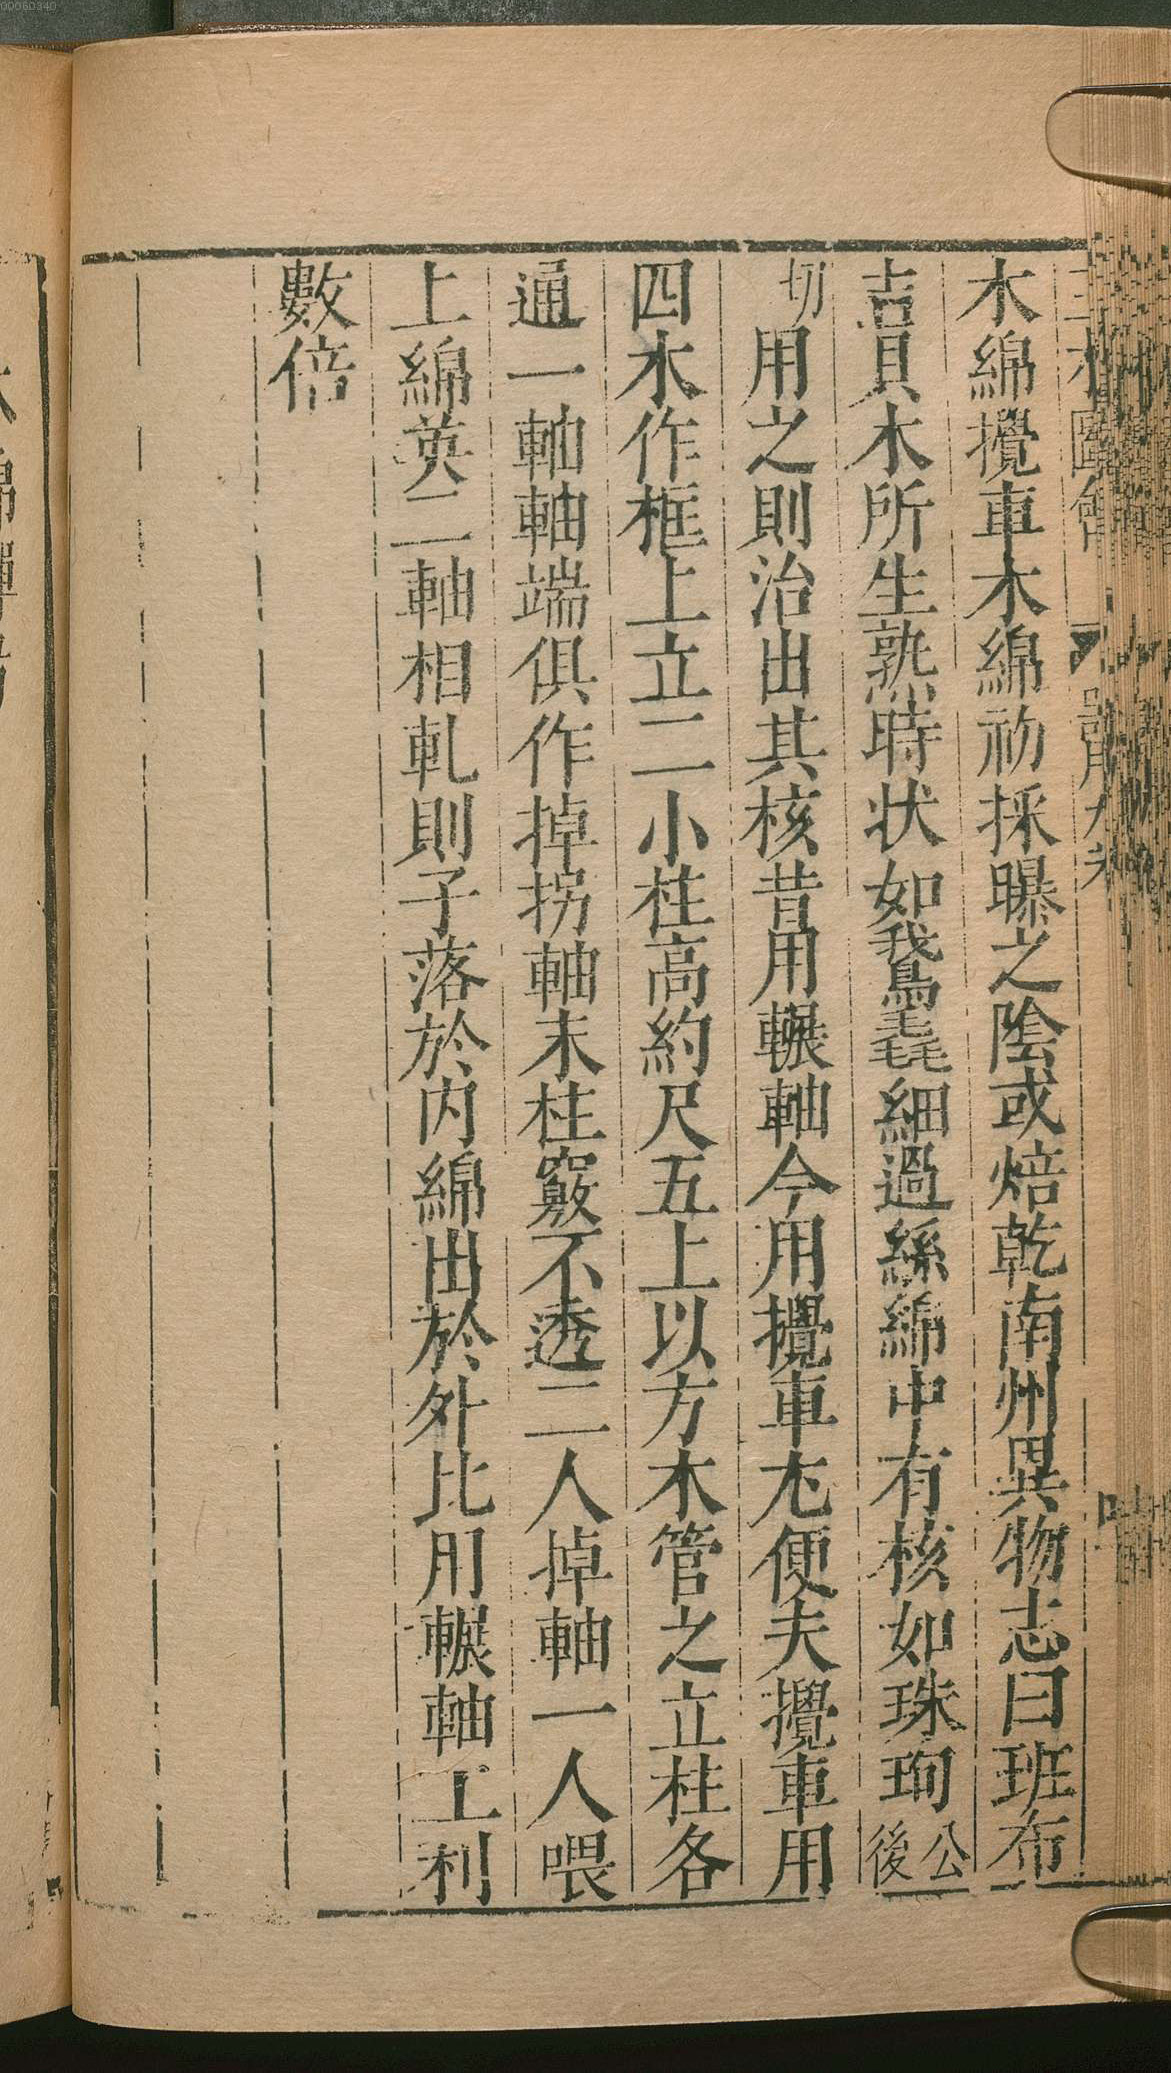 木綿攪車木綿初採曝之陰或焙乾南州異物志曰班布
吉貝木所生熟時状如鵞毳細過絲綿中有核如珠珣公後
切用之則治出其核昔用輾軸今用攪車尤便夫攪車用
四木作框上立二小柱高約尺五上以方木管之立柱各
通一軸軸端俱作掉拐軸末柱竅不透二人掉軸一人喂
上綿英二軸相軋則子落於内綿出於外比用輾軸工利
數倍
00060340